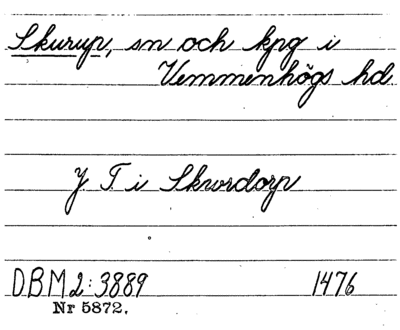 Skurup, sn och kpg i
Vemmenhögs hd.
J. T. i Skwrdorp
DBM 2:3889 1476
Nr 5872.